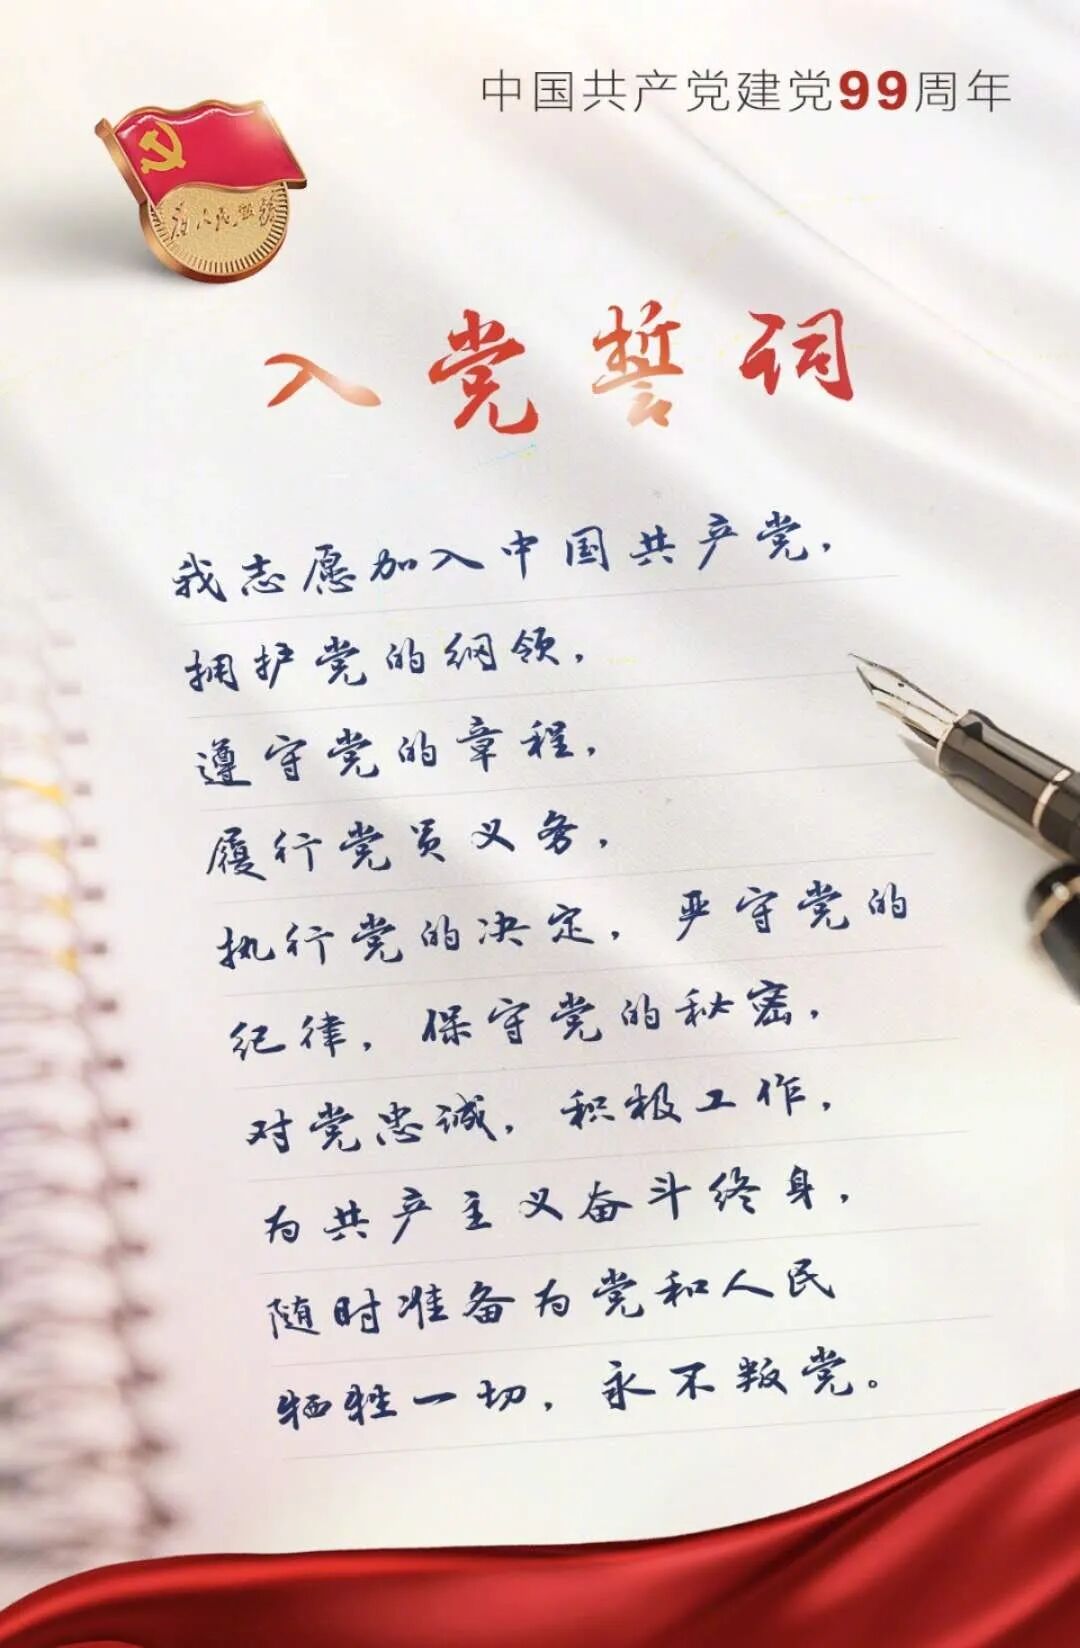 中国共产党建党99周年
为人民服务
入党誓词
我志愿加入中国共产党，
拥护党的纲领，
遵守党的章程，
履行党员义务，
执行党的决定，严守党的
纪律，保守党的秘密，
对党忠诚，积极工作，
为共产主义奋斗终身，
随时准备为党和人民
牺牲一切，永不叛党。